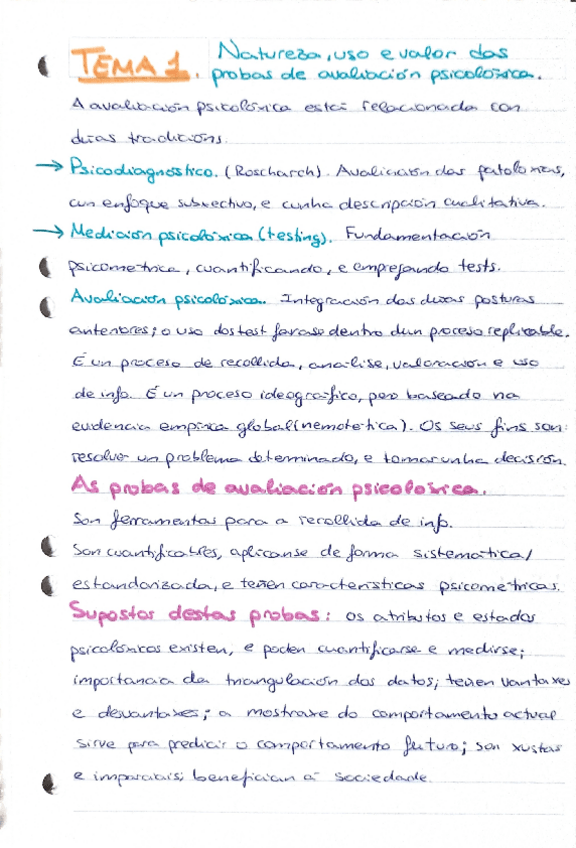 TEMA 1. Natureza, uso e valor das
probas de avaliación psicolóxica.
A avaliación psicolóxica está relacionada con
dúas tradicións.
→ Psicodiagnóstico. (Roscharch). Avaliación das patoloxías,
cun enfoque subxectivo, e cunha descripción cualitativa.
→ Medición psicolóxica (testing). Fundamentación
psicométrica, cuantificando, e empregando tests.
Avaliación psicolóxica. Integración das dúas posturas
anteriores; o uso dos test farase dentro dun proceso replicable.
É un proceso de recollida, análise, valoración e uso
de info. É un proceso ideográfico, pero baseado na
evidencia empírica global (nemotética). Os seus fins son:
resolver un problema determinado, e tomar unha decisión.
As probas de avaliación psicolóxica.
Son ferramentas para a recollida de info.
Son cuantificables, aplícanse de forma sistemática/
estandarizada, e teñen características psicométricas.
Supostos destas probas: os atributos e estados
psicolóxicos existen, e poden cuantificarse e medirse;
importancia da triangulación dos datos; teñen vantaxes
e desvantaxes; a mostraxe do comportamento actual
sirve para predicir o comportamento futuro; son xustas
e imparciais; benefician á sociedade.